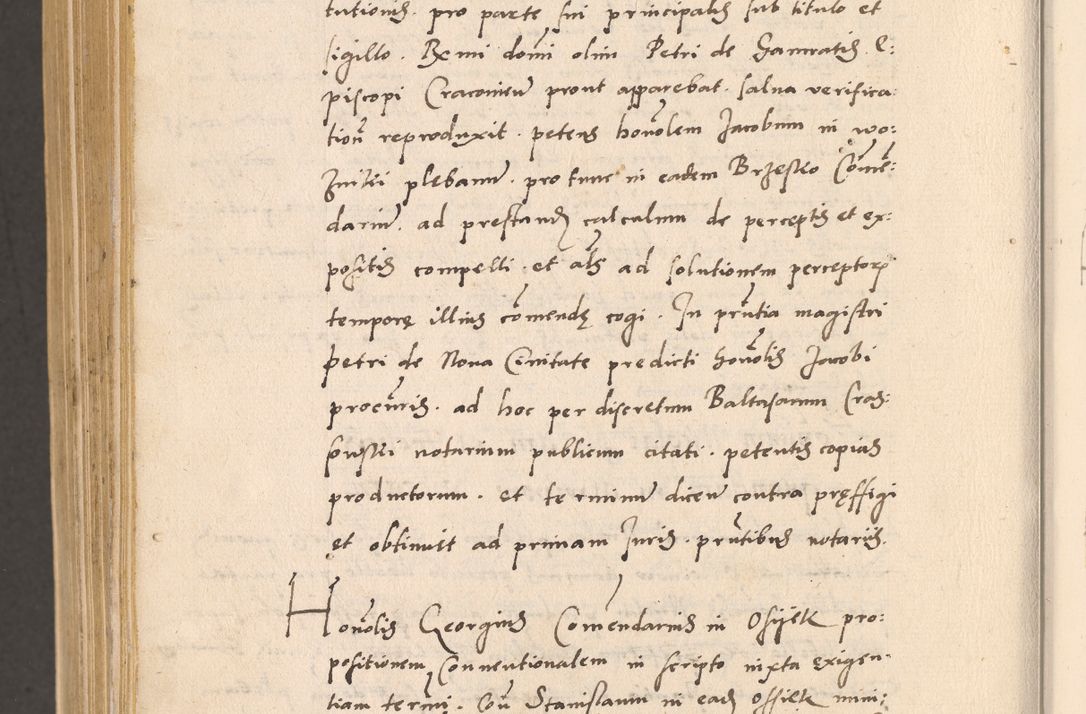 tutionis . pro parte sui principalis sub titulo et
sigillo . Rxmi domi olim Petri de Gamratis E:
piscopi Cracoviens prout apparebat . salva verifica:
tione reproduxit . petens honolem Jacobum in wo:
plebanum . pro tunc in eadem Brzesko Comen:
darium . ad prestand calculum de perceptis et ex:
positis compelli . et als ad solutionem perceptorum
tempore illius comende cogi . In pntia magistri
Petri de Nova Civitate predicti honolis Jacobi
procuris . ad hoc per discretum Baltasarum Cras:
notarium publicum citati . petentis copias
productorum . et terminum dicen contra preffigi
et obtinuit ad primam Juris . pntibus notariis .
Honolis Georgius Comendarius in Osijek pro:
positionem conventionalem in scripto iuxta exigen:
tiam termi . Con Stanislaum in ead Ossiek mini: